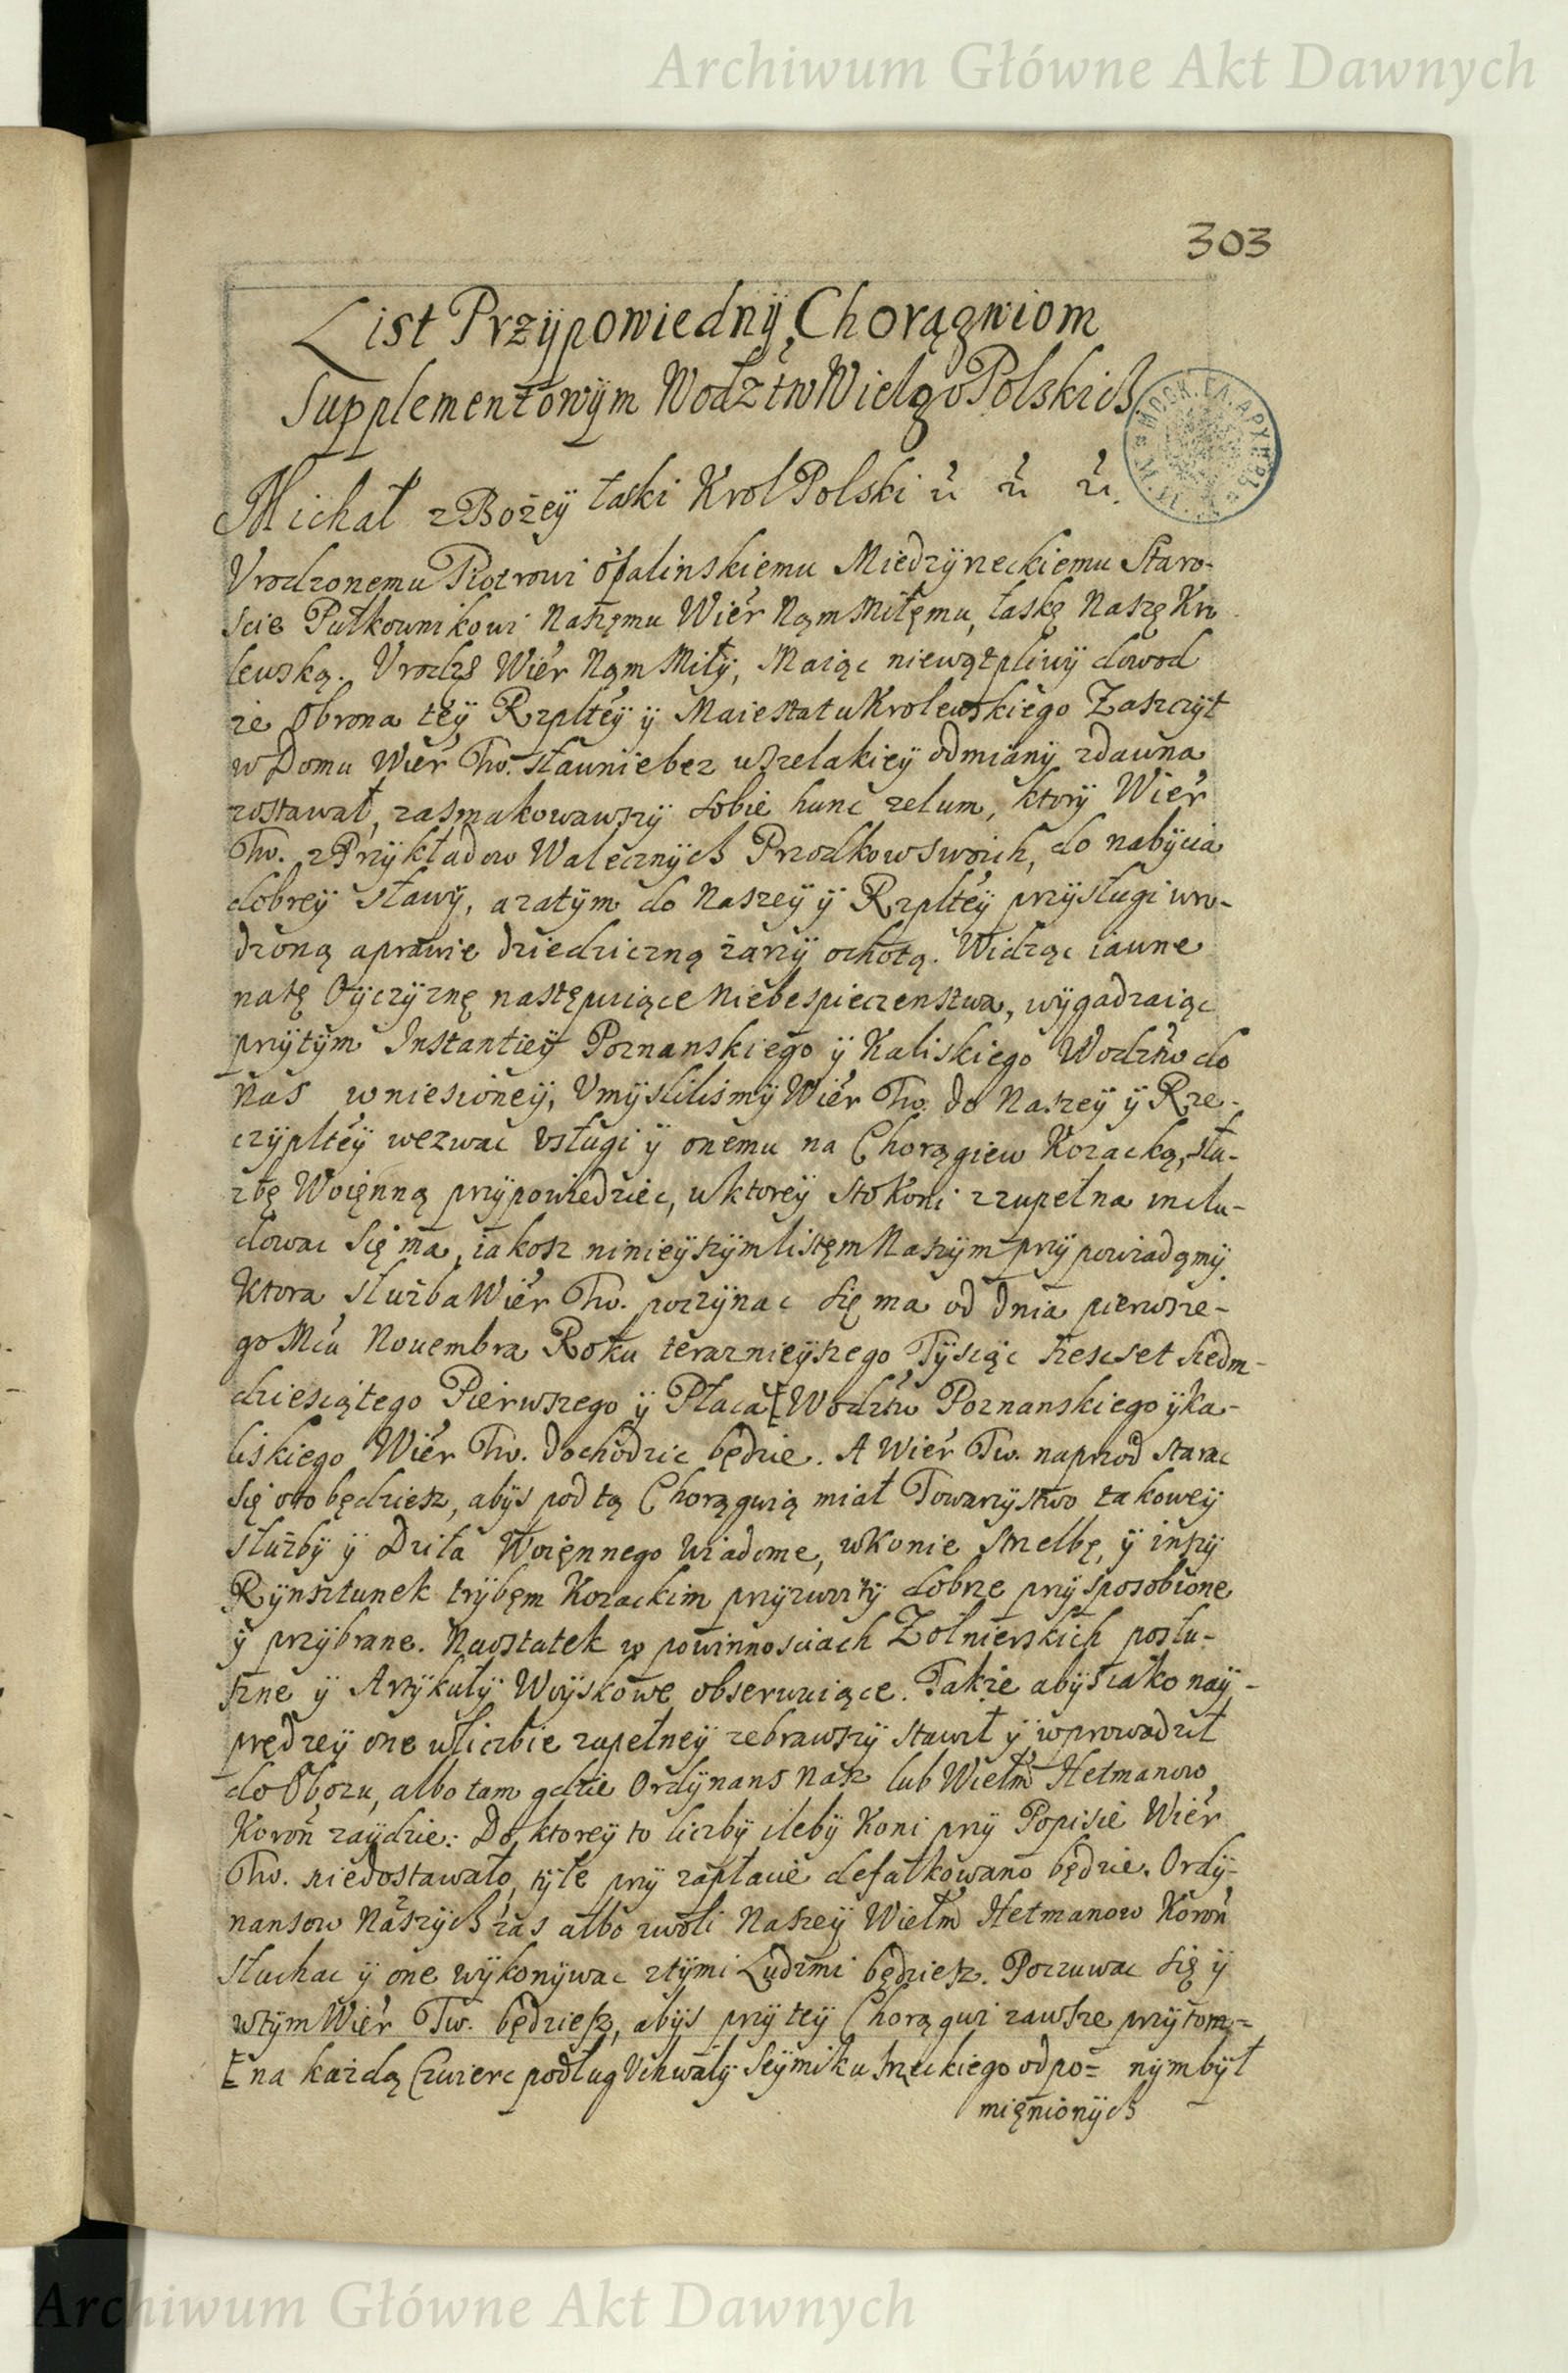 Archiwum Główne Akt Dawnych
303
List Przÿpowiednÿ Chorągwiom
Supplementowÿm Wodztw WielgoPolskich
Michał z Bożeÿ łaski Krol Polski
Vrodzonemu Piotrowi Opalinskiemu Miedzÿrzeckiemu Staro-
scie Pułkownikowi Naszęmu Wier Nąm Miłęmu, łaskę Naszę Kro
lewską. Vrodzę Wier Nąm Miłÿ, Maiąc niewątpliwÿ dowod
że Obrona teÿ Rzplteÿ ÿ Maiestatu Krolewskiego Zaszczÿt
w Domu Wier Tw. sławnie bez wszelakieÿ odmianÿ zdawna
zostawał, zasmakowawszÿ sobie hunc zelum, ktorÿ Wier
Tw. z Przÿkładow Walecznÿch Przodkow swoich, do nabÿcia
dobreÿ sławÿ, a zatÿm do Naszeÿ ÿ Rzplteÿ przÿsługi wro-
dzoną aprawie dziedziczną żarzÿ ochotą. Widząc iawne
natę Oÿczÿznę następuiące Niebespieczenstwa, wÿgadzaiąc
przÿtÿm Instantieÿ Poznanskiego ÿ Kaliskiego Wodztw do
Nas wniesioneÿ, Vmÿslilismÿ Wier Tw. do Naszeÿ ÿ Rze-
czÿplteÿ wezwac Vsługi ÿ onemu na Chorągiew Kozacką, słu-
zbę Woięnną przÿpowiedziec, w ktoreÿ sto Koni zzupełna inclu-
dowac się ma, iakosz ninieÿszÿm listęm Naszÿm przÿpowiadąmÿ.
Ktora służba Wier Tw. poczÿnac się ma od dnia pierwsze-
go Mca Nouembra Roku teraznieÿszego Tÿsiąc szescset siedm-
dziesiątego Pierwszego ÿ Płaca [Wodztw Poznanskiego ÿ ka-
liskiego Wier Tw. dochodzic będzie. A Wier Tw. naprzod starac
się oto będziesz, abÿs pod tą Chorągwią miał Towarzÿstwo takoweÿ
służbÿ ÿ Dziła Woięnnego wiadome, w Konie strzelbę, ÿ inszÿ
Rÿnsztunek trÿbęm Kozackim przÿzwoitÿ dobrze przÿsposobione
ÿ przÿbrane. Naostatek w powinnosciach Zołnierskich posłu-
szne ÿ Artÿkułÿ Woÿskowe obserwuiące. Takze abÿs iako naÿ-
prędzeÿ one wliczbie zupełneÿ zebrawszÿ stawił ÿ wprowadził
do Obozu, albo tam gdzie Ordÿnans Nasz lub Wielm Hetmanow
Koron zaÿdzie: Do ktoreÿ to liczbÿ ilebÿ Koni przÿ Popisie Wier
Tw. niedostawało, tÿle przÿ zapłacie defalkowano będzie. Ordÿ-
nansow Naszÿch zas albo zwoli Naszeÿ Wielm Hetmanow Koron
słuchac ÿ one wÿkonÿwac ztÿmi Ludzmi będziesz. Poczuwac się ÿ
wtÿm Wier Tw. będziesz, abÿs przÿ teÿ Chorągwi zawsze przÿtom-
nÿm bÿł
[na każdą Czwierc podług Vchwałÿ Seÿmiku Srzeckiego odpo-
mięnionÿch
Archiwum Główne Akt Dawnych